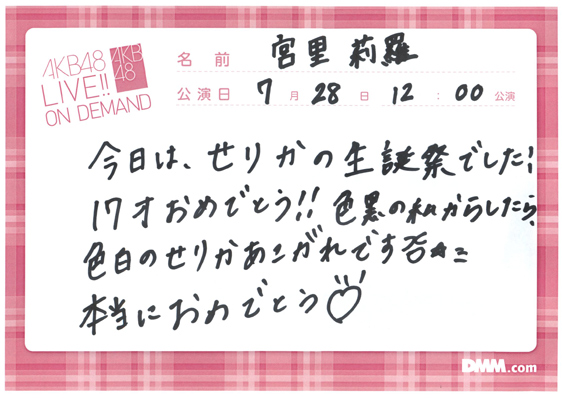 AKB48
LIVE!!
ON DEMAND
AKB
48
名前 宮里莉羅
公演日 7月28日 12:00公演
今日は、せりかの生誕祭でした!
17才おめでとう!! 色黒の私からしたら、
色白のせりかあこがれです
本当におめでとう♡
DMM.com